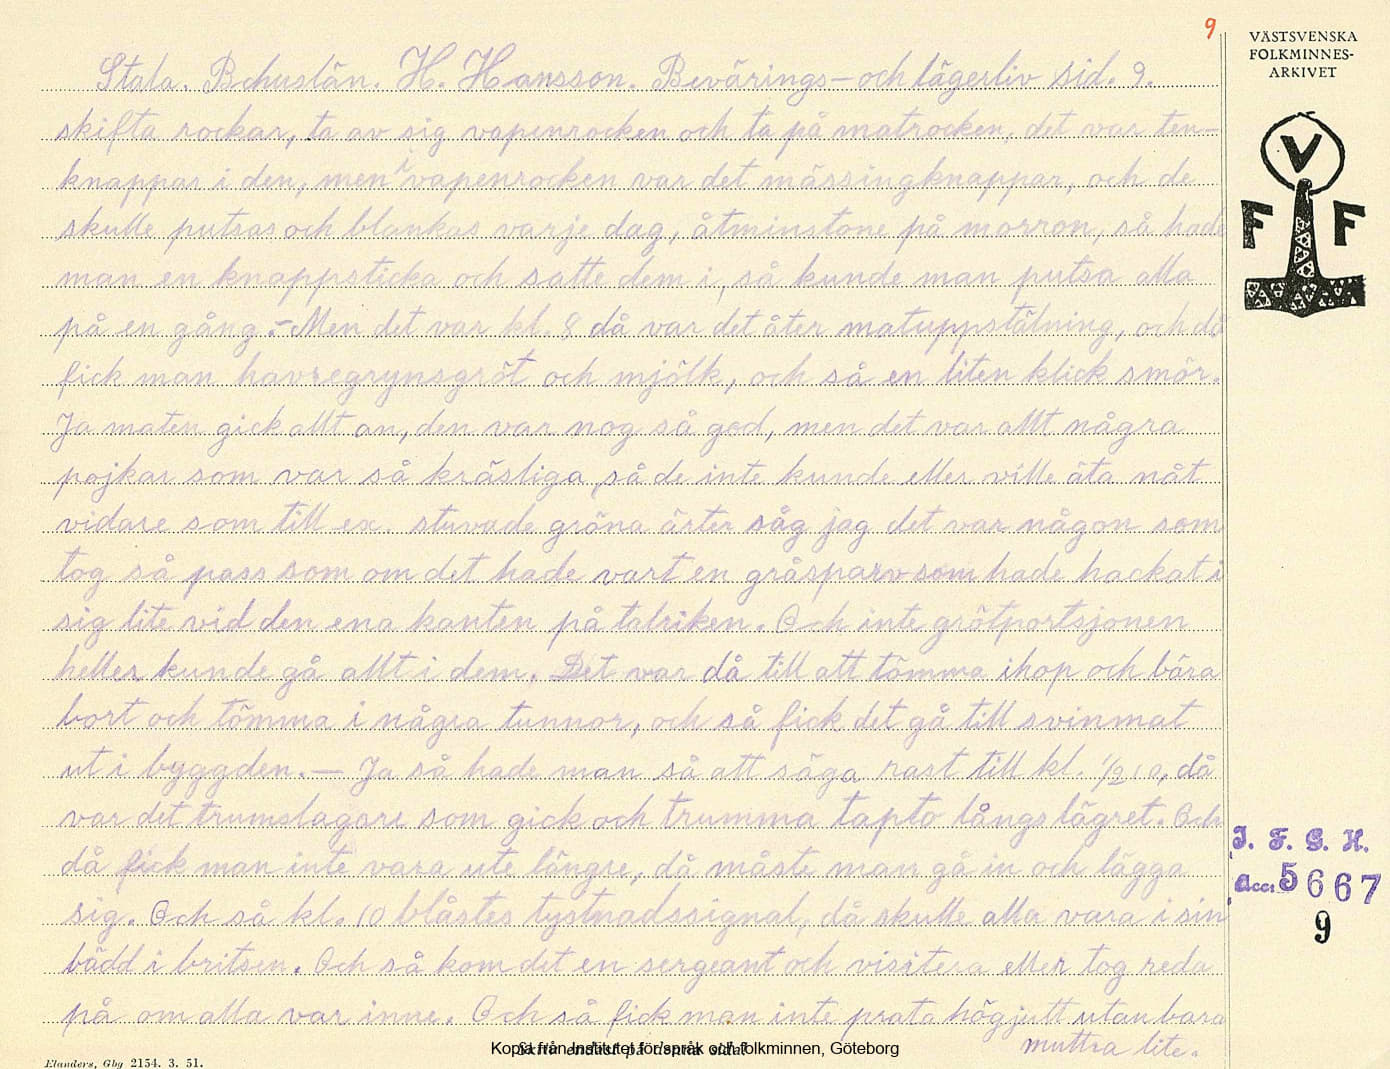 9
VÄSTSVENSKA
FOLKMINNES-
ARKIVET
Stala. Bohuslän. H. Hansson. Bevärings- och lägerliv sid. 9.
skifta rockar, ta av sig vapenrocken och ta på matrocken, det var ten-
knappar i den, men i vapenrocken var det mässingknappar, och de
skulle putsas och blankas varje dag, åtminstone på morron, så hade
man en knappsticka och satte dem i, så kunde man putsa alla
på en gång. - Men det var kl. 8 då var det åter matuppstälning, och då
fick man havregrynsgröt och mjölk, och så en liten klick smör.
Ja maten gick allt an, den var nog så god, men det var allt några
pojkar som var så kräsliga, så de inte kunde eller ville äta nåt
vidare som till ex. stuvade gröna ärter såg jag det var någon som
tog så pass som om det hade vart en gråsparv som hade hackat i
sig lite vid den ena kanten på talriken. Och inte grötportsjonen
heller kunde gå allt i dem. Det var då till att tömma ihop och bära
bort och tömma i några tunnor, och så fick det gå till svinmat
ut i byggden. — Ja så hade man så att säga rast till kl. 1/2 10, då
var det trumslagare som gick och trumma tapto långs lägret. Och
då fick man inte vara ute längre, då måste man gå in och lägga
sig. Och så kl. 10 blåstes tystnadssignal, då skulle alla vara i sin
bädd i britsen. Och så kom det en sergeant och visitera eller tog reda
på om alla var inne. Och så fick man inte prata högjutt utan bara
muttra lite.
V
F F
I. F. G. H.
acc. 5667
9
Skriv endast på denna sida!
Kopia från Institutet för språk och folkminnen, Göteborg
Elanders, Gbg 2154. 3. 51.